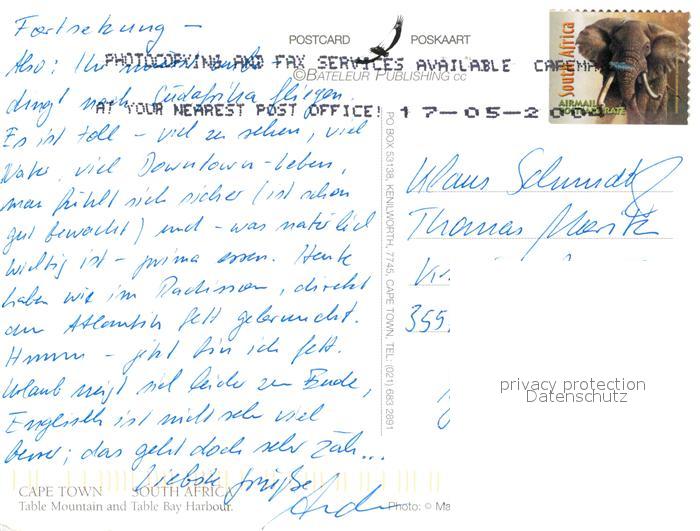 Fortsetzung —
POSTCARD POSKAART
South Africa
AIRMAIL
Also: Ihr
PHOTOCOPYING AND FAX SERVICES AVAILABLE
©BATELEUR PUBLISHING CC
dingt nach Südafrika fliegen.
AT YOUR NEAREST POST OFFICE! 17-05-200
Es ist toll – viel zu sehen, viel
Natur, viel Downtown-Leben,
man fühlt sich sicher (ist schon
gut bewacht) und – was natürlich
wichtig ist – prima essen. Heute
haben wir im direkt
am Atlantik fett gebruncht.
Hmmm – jetzt bin ich fett.
Urlaub neigt sich leider zu Ende,
Englisch ist nicht sehr viel
besser; das geht doch sehr zäh...
Liebste Grüße
PO BOX 53138, KENILWORTH, 7745, CAPE TOWN, TEL: (021) 683 2891
Klaus Schmidt
Thomas Moritz
355
privacy protection
Datenschutz
CAPE TOWN SOUTH AFRICA
Table Mountain and Table Bay Harbour.
Photo: © Ma